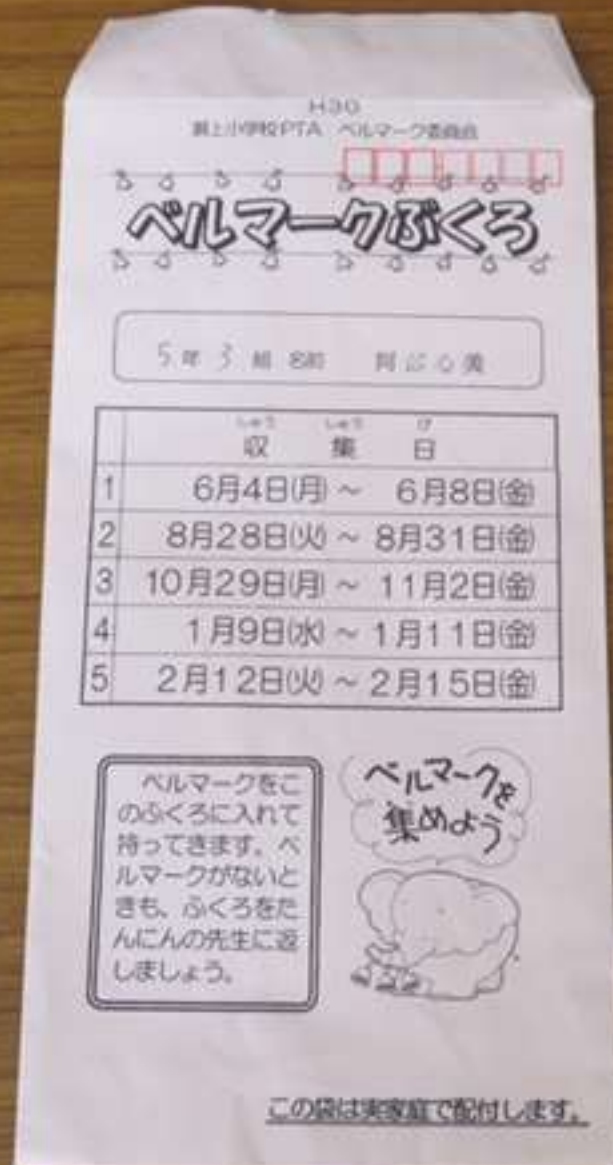 H30
瀬上小学校PTA ベルマーク委員会
ベルマークぶくろ
5年 3組 名前 阿部心美
しゅう しゅう び
収集日
1 6月4日(月)～ 6月8日(金)
2 8月28日(火)～ 8月31日(金)
3 10月29日(月)～ 11月2日(金)
4 1月9日(水)～ 1月11日(金)
5 2月12日(火)～ 2月15日(金)
ベルマークをこ
のふくろに入れて
持ってきます。ベ
ルマークがないと
きも、ふくろをた
んにんの先生に返
しましょう。
ベルマークを
集めよう
この袋は実家庭で配付します。